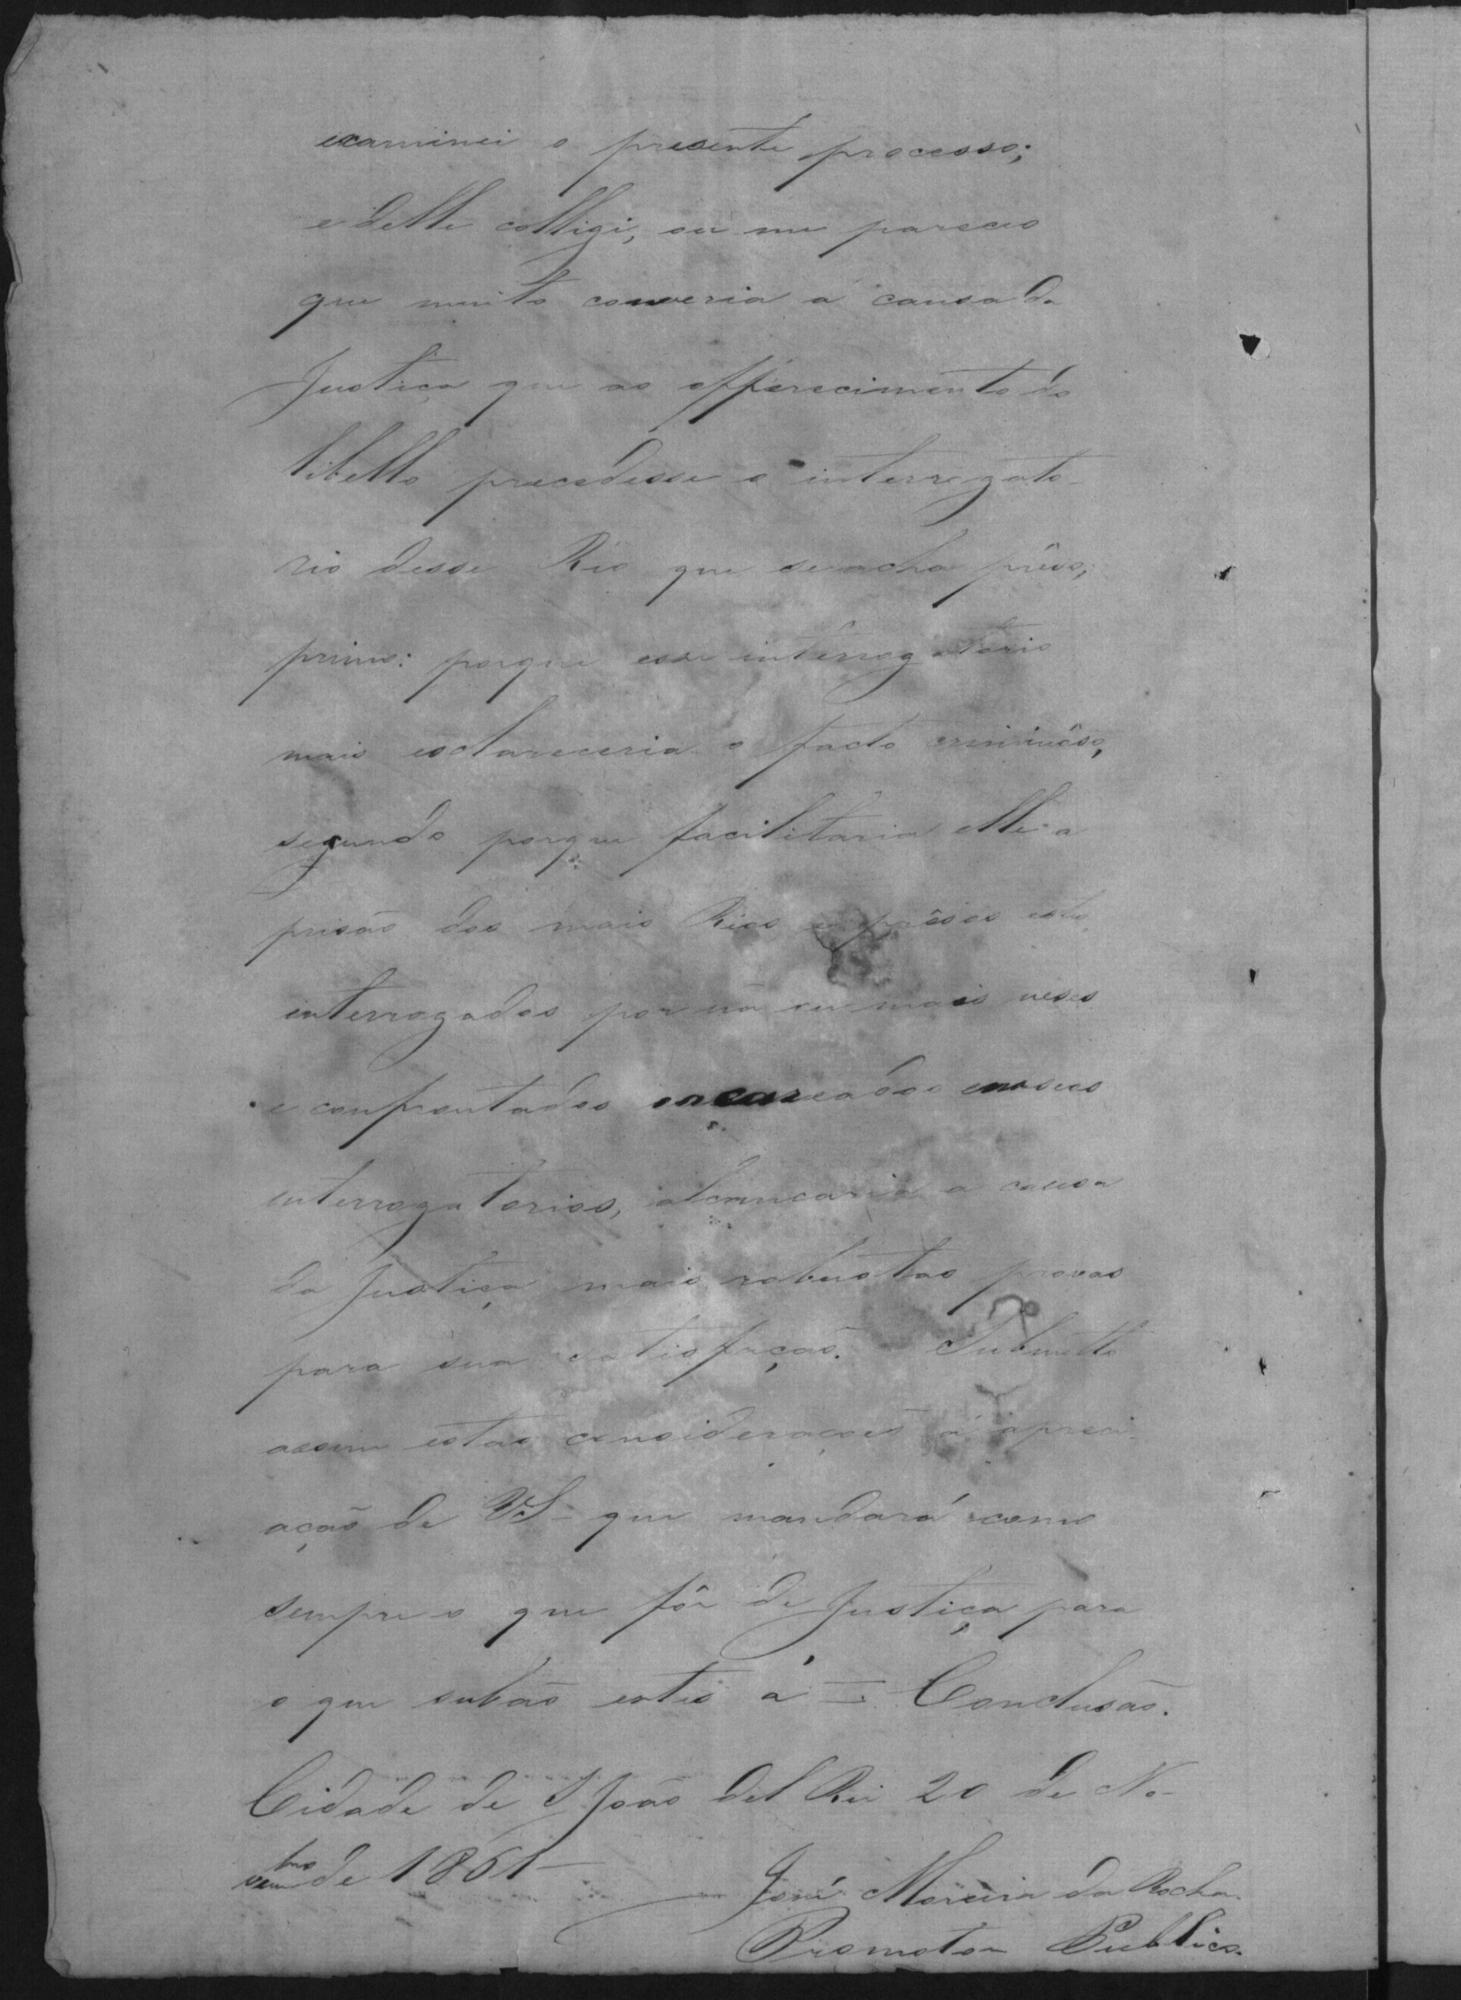 examinei o presente processo;
e delle colligi, ou me pareceo
que muito converia á causa da
Justiça que ao offerecimento do
libello precedesse o interrogato-
rio desse Réo que se acha prêso;
primo: porque esse interrogatorio
mais esclareceria o facto criminôso,
segundo porque facilitaria elle a
prisão dos mais Réos e prêsos
interrogados por ua ou mais veses
e confrontados em seos
interrogatorios, alcançaria a causa
da Justiça mais robustas provas
para sua satisfação. Submetto
assim estas considerações á apreci-
ação de VS que mandará como
sempre o que fôr de Justiça para
o que subão estes á Conclusão.
Cidade de S João del Rei 20 de No-
vembro de 1861
José Moreira da Rocha.
Promotor Publico.